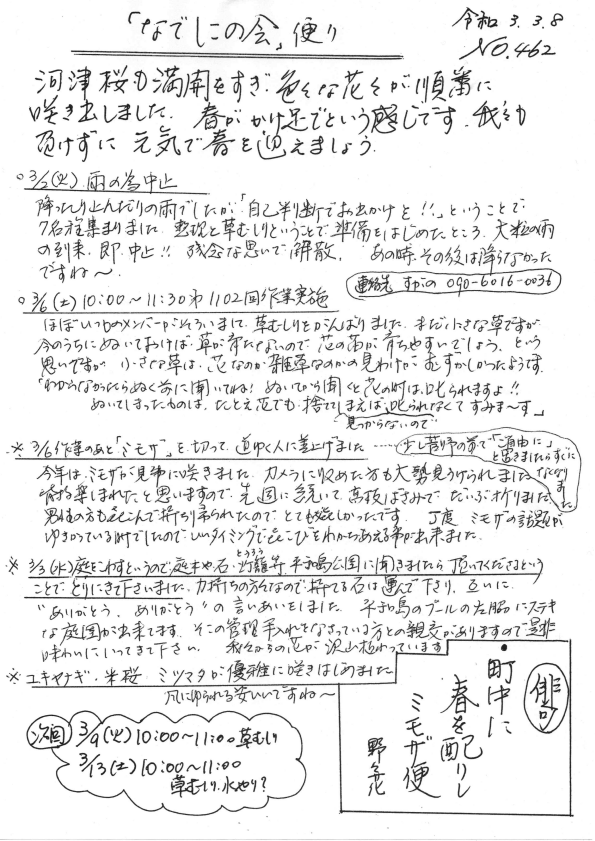 「なでしこの会」便り
令和3.3.8
NO.462
河津桜も満開をすぎ 色々な花々が順番に
咲き出しました。春が かけ足でという感じです。我々も
負けずに 元気で春を迎えましょう。
○3/2(火) 雨の為中止
降ったり止んだりの雨でしたが、「自己判断でお出かけを!!」ということで
7名程集まりました。 草むしりということで準備をはじめたところ、大粒の雨
の到来、即、中止!! 残念な思いで解散。 あの時、その後は降らなかった
ですね〜。
連絡先 090-6016-0036
○3/6(土) 10:00〜11:30 第1102回作業実施
ほぼいつものメンバーがそろいまして、草むしりをがんばりました。まだ小さな草ですが
今のうちにぬいておけば、草が育たないので 花の苗が育ちやすいでしょう、という
思いですが 小さな草は、花なのか 雑草なのかの見わけがむずかしかったようです。
「わからなかったらぬく前に聞いてね! ぬいてから聞くと 花の時は叱られますよ!!
ぬいてしまったものは、たとえ花でも、捨ててしまえば、叱られなくてすみま〜す」
見つからないので
※3/6作業のあと「ミモザ」を切って、道ゆく人に差上げました
少し 前で「ご自由に」
と置きましたらすぐに
なくなりました
今年は、ミモザが見事に咲きました。カメラに収めた方も大勢見うけられました。
楽しまれたと思いますので、先週に続いて、高枝ばさみで だいぶ切りました。
男性の方も喜こんで持ち帰られたので とても嬉しかったです。 丁度 ミモザの話題が
ゆきかっている時でしたので、いいタイミングで、喜こびをわかちあえる事が出来ました。
※3/3(水)庭をこわすというので庭木や石・灯籠等 平和島公園に聞きましたら頂いてくださるという
とうろう
ことで とりにきて下さいました。力持ちの方々なので、持てる石は運んで下さり、互いに
“ありがとう、ありがとう”の言いあいをしました。 平和島のプールの左脇にステキ
な庭園が出来てます。そこの管理手入れをなさっている方との親交がありますので是非
味わいにいってきて下さい。 我々からの花が 沢山植わっています
※ユキヤナギ・ 桜・ミツマタが優雅に咲きはじめました
風にゆられる姿いいですね〜
次回
3/9(火) 10:00〜11:00 草むしり
3/13(土) 10:00〜11:00
草むしり、水やり?
俳句
町中に
春を配りし
ミモザ便
野々花